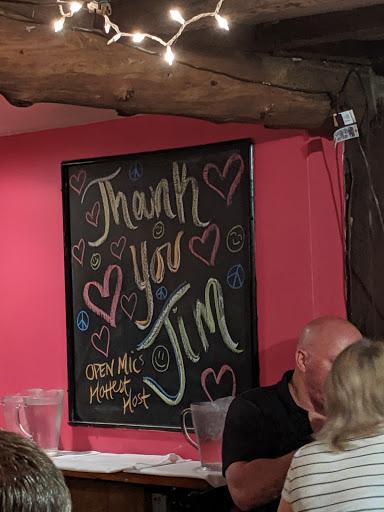 Thank
You
Jim
OPEN Mic's
Hottest
Host